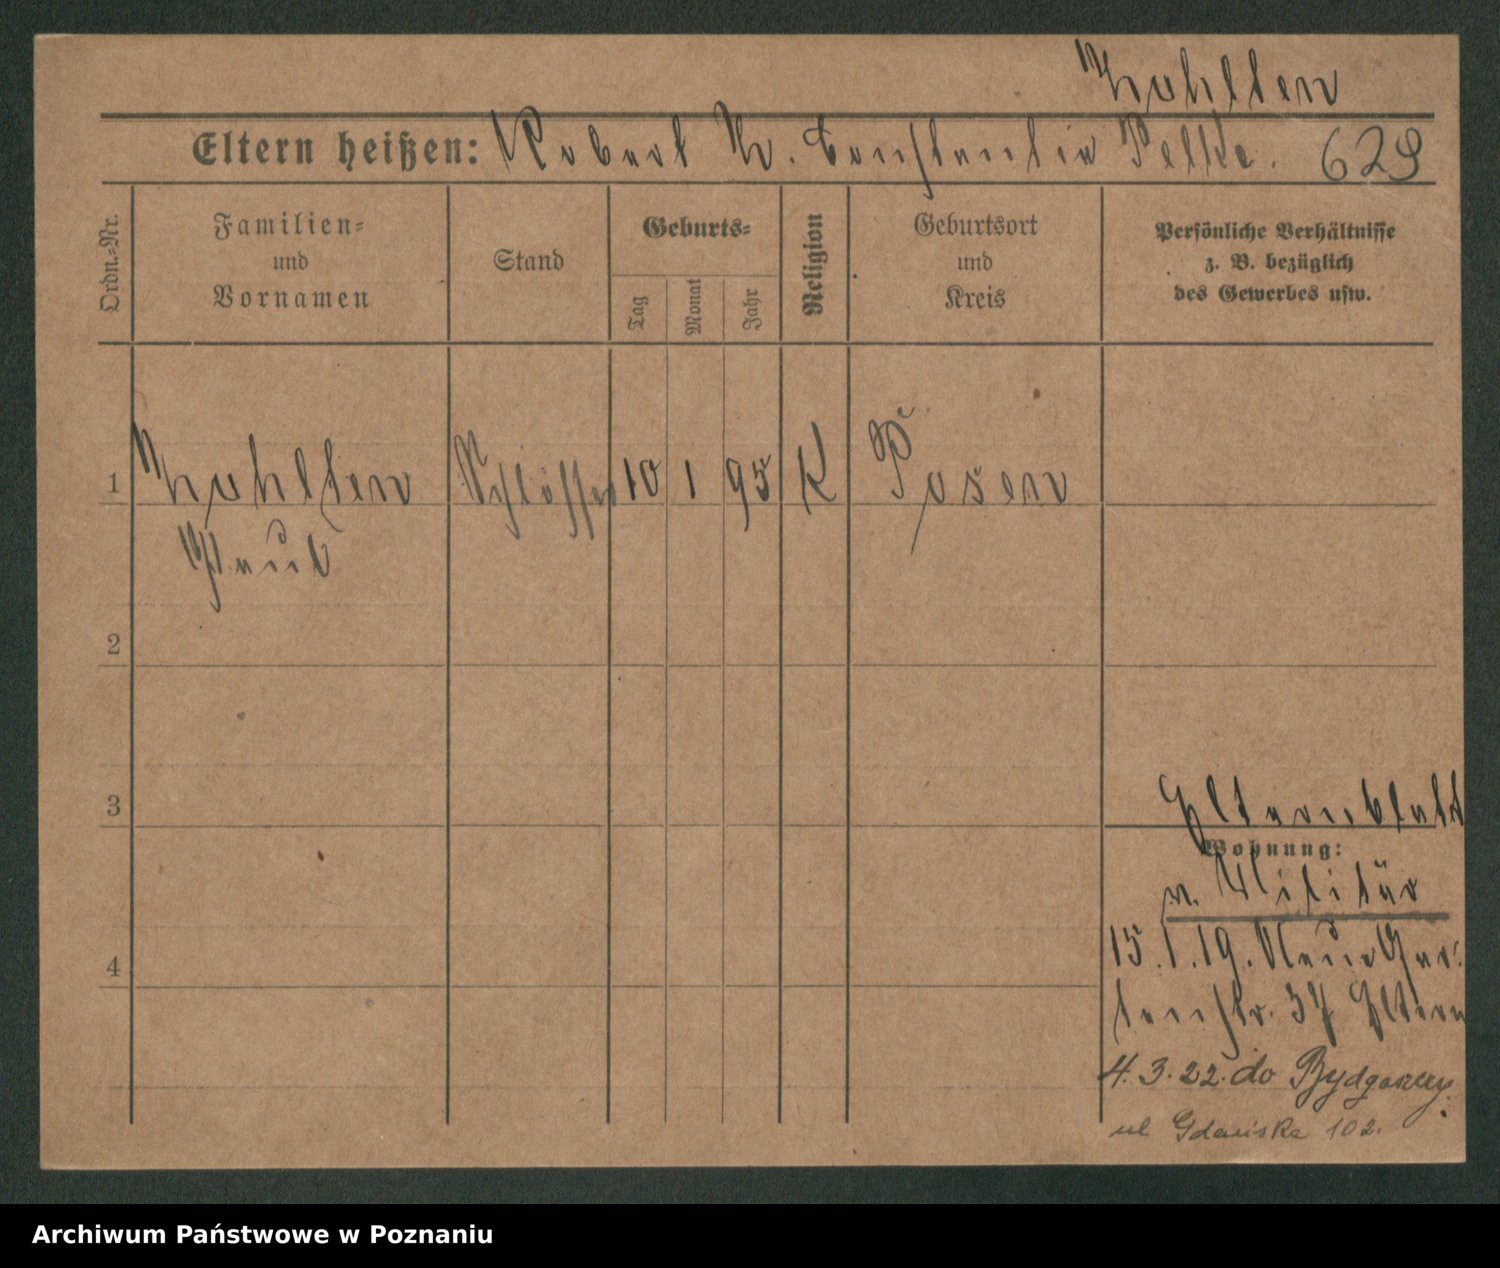 Eltern heißen: Robert u. Constantia Pelka. 629
Ordn.-Nr.
Familien-
und
Vornamen
Stand
Geburts-
Tag
Monat
Jahr
Religion
Geburtsort
und
Kreis
Persönliche Verhältnisse
z. B. bezüglich
des Gewerbes usw.
1 Schlosser 10 1 95 K Posen
Paul
2
3
Elternblatt
Wohnung:
v. Militär
15.1.19. Neue Gar-
4
tenstr. 37 Eltern
4.3.22. do Bydgoszczy.
ul Gdańska 102.
Archiwum Państwowe w Poznaniu